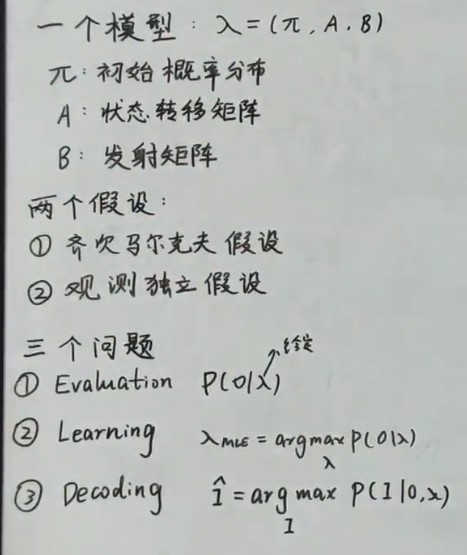 一个模型: λ=(π, A. B)
π: 初始概率分布
A: 状态转移矩阵
B: 发射矩阵
两个假设:
① 齐次马尔克夫假设
② 观测独立假设
三个问题
给定
① Evaluation P(O|λ)
② Learning λ_MLE = argmax_λ P(O|λ)
③ Decoding Î = argmax_I P(I|O,λ)